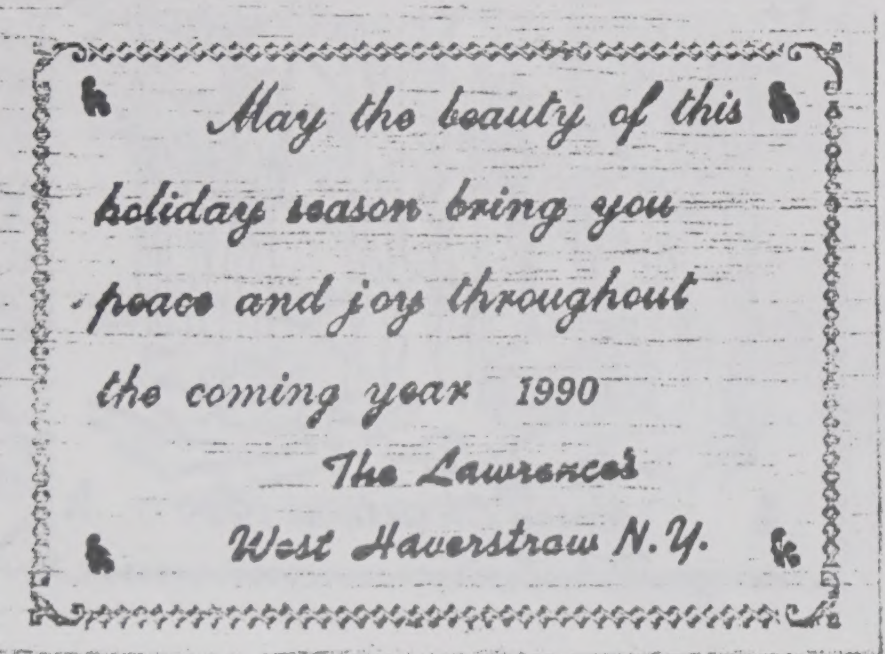 May the beauty of this
holiday season bring you
peace and joy throughout
the coming year 1990
The Lawrence's
West Haverstraw N.Y.